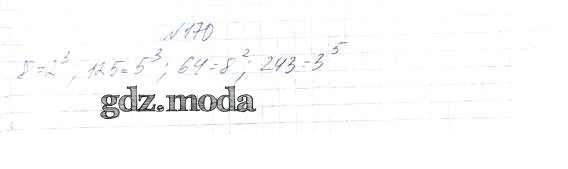 №170
8=2³; 125=5³; 64=8²; 243=3⁵
gdz.moda